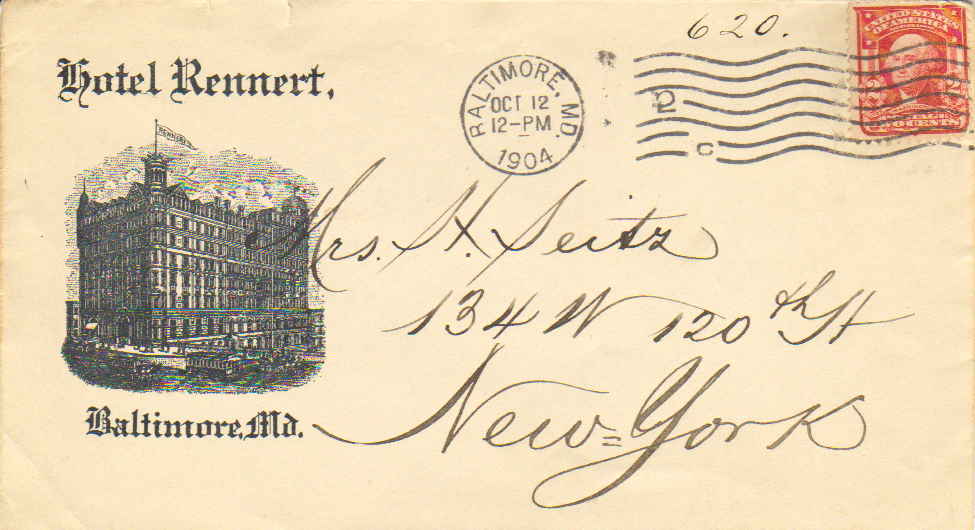 620.
UNITED STATES
OF AMERICA
2 2
TWO CENTS
Hotel Rennert,
BALTIMORE, MD.
OCT 12
12-PM
1904
2
C
RENNERT
Mrs. H. Seitz
134 W 120th St
New=York
Baltimore, Md.